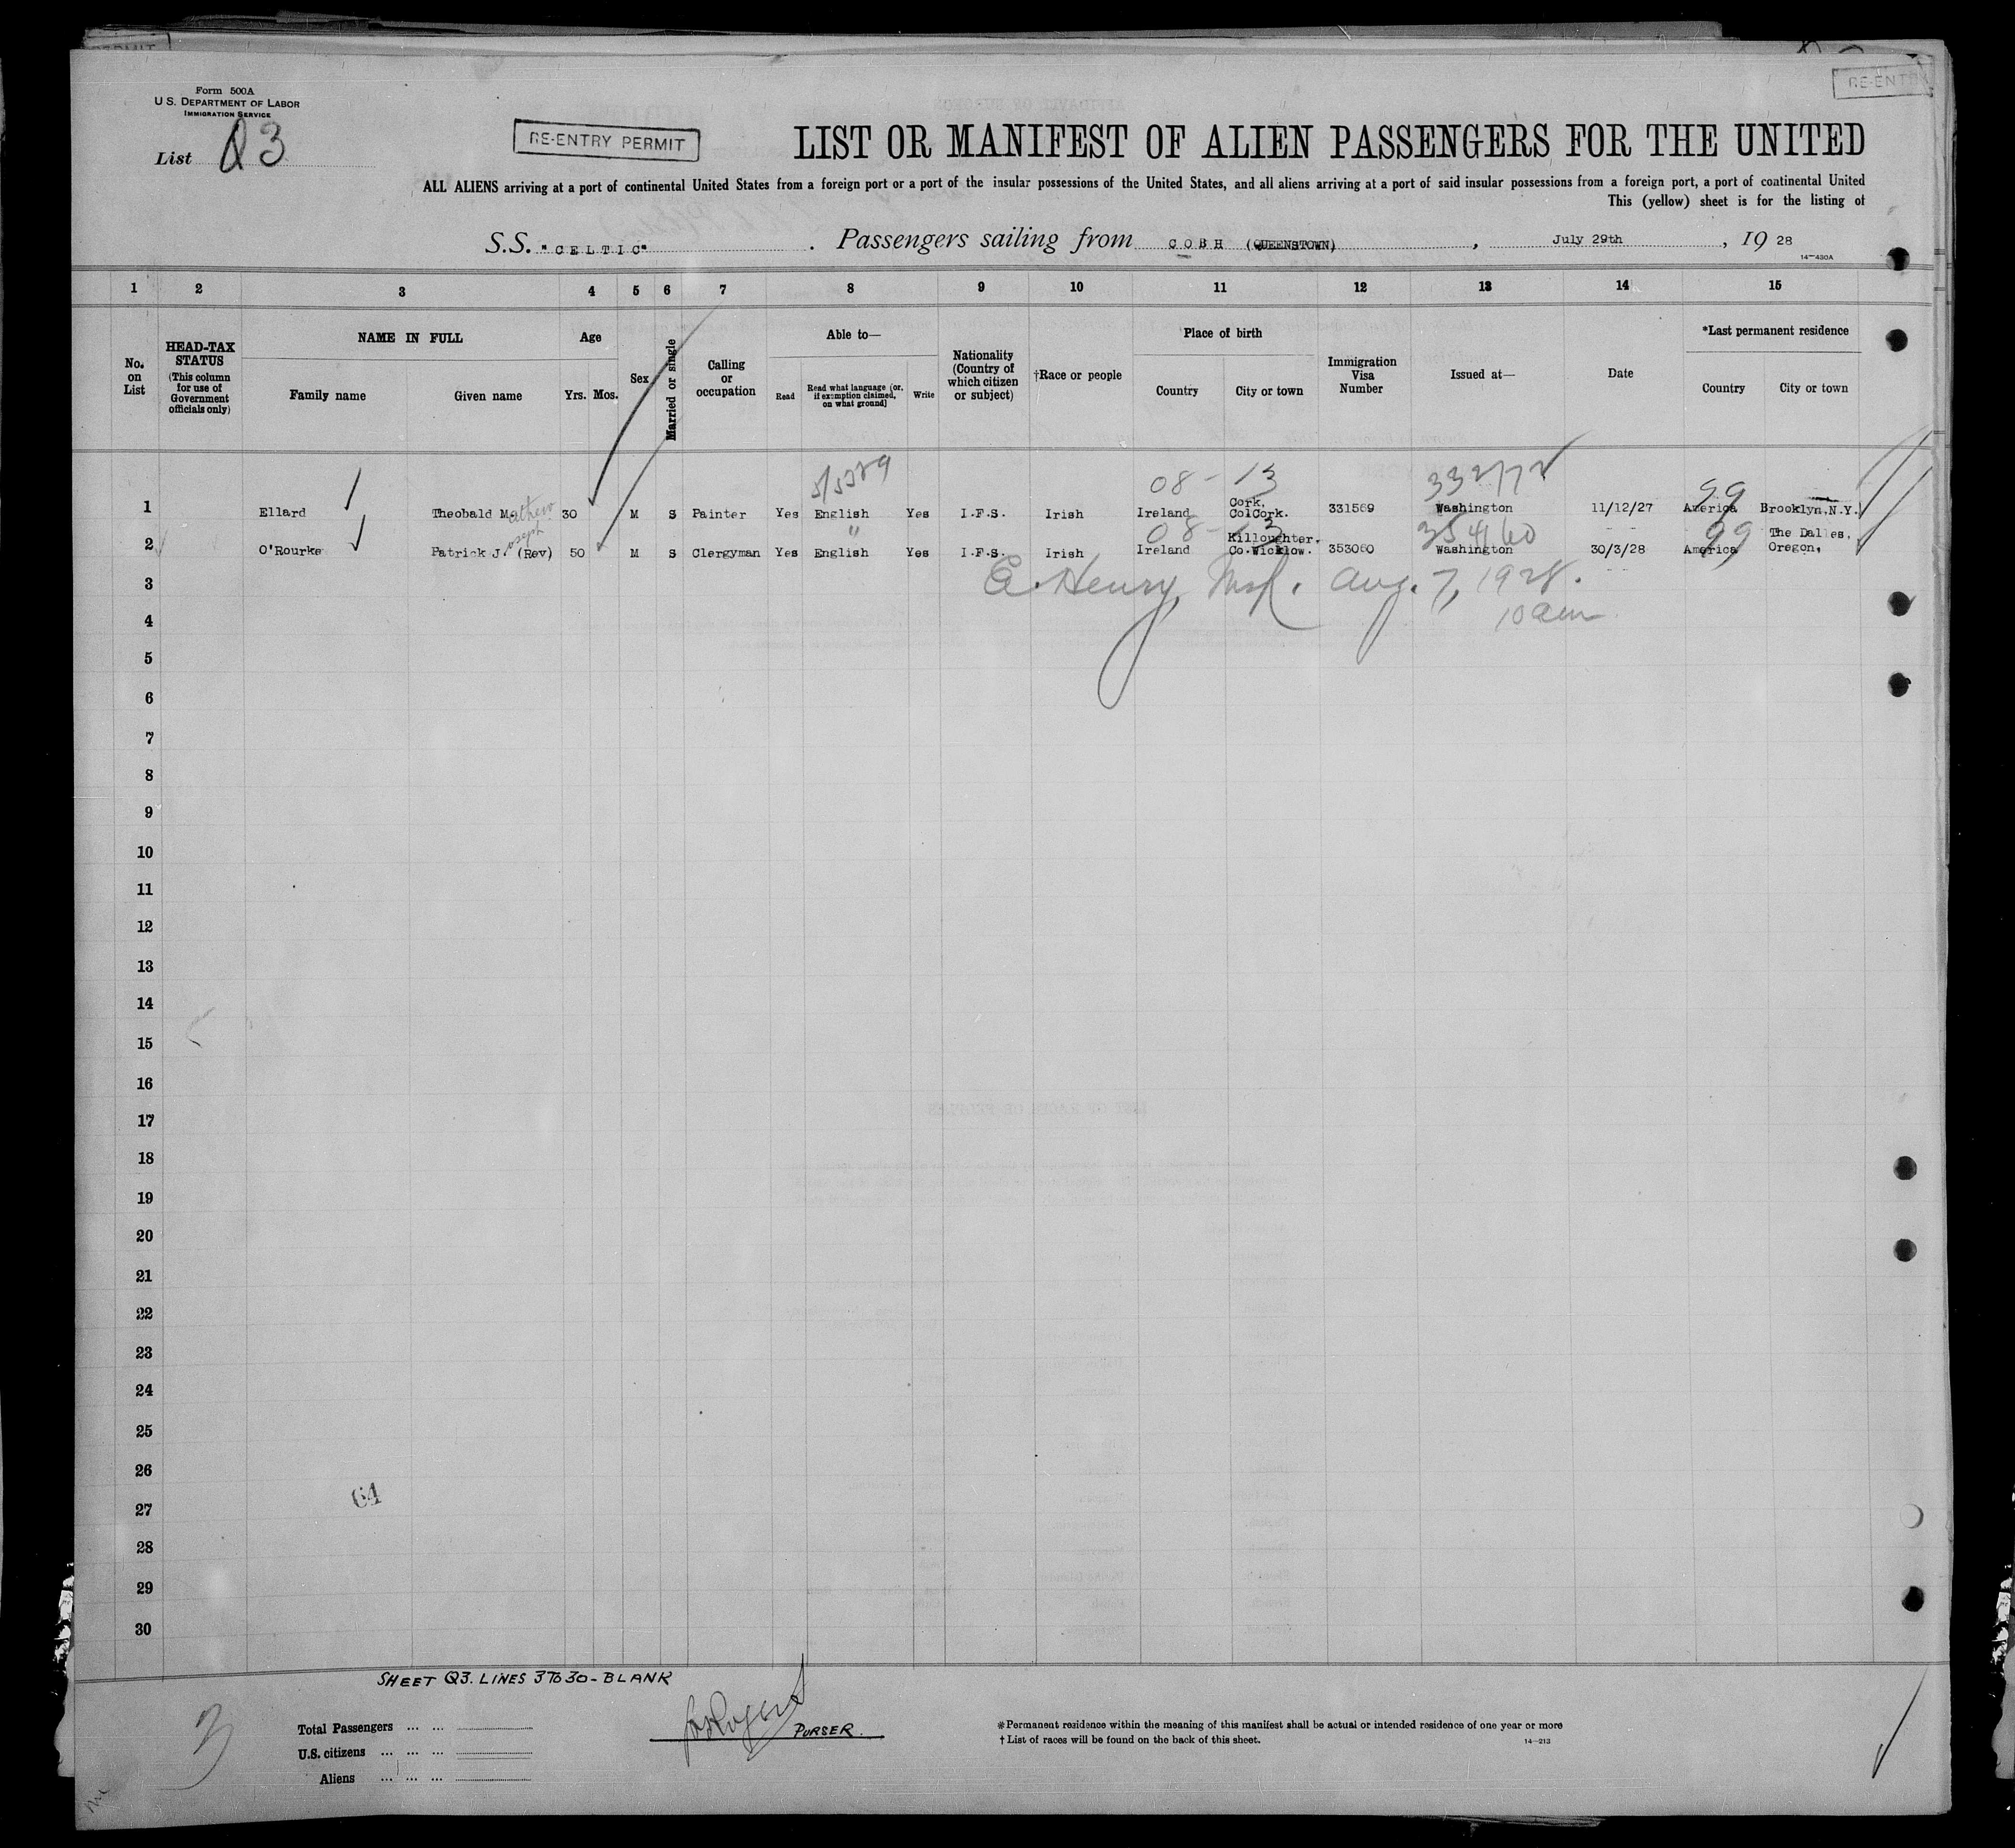 PERMIT
Form 500A
U.S. DEPARTMENT OF LABOR
IMMIGRATION SERVICE
List Q3
RE-ENTRY PERMIT
RE-ENTRY
LIST OR MANIFEST OF ALIEN PASSENGERS FOR THE UNITED
ALL ALIENS arriving at a port of continental United States from a foreign port or a port of the insular possessions of the United States, and all aliens arriving at a port of said insular possessions from a foreign port, a port of continental United
This (yellow) sheet is for the listing of
S.S. "CELTIC". Passengers sailing from COBH (QUEENSTOWN), July 29th, 1928
14-430A
1 2 3 4 5 6 7 8 9 10 11 12 13 14 15
No. on List
HEAD-TAX STATUS (This column for use of Government officials only)
NAME IN FULL
Family name Given name
Age
Yrs. Mos.
Sex
Married or single
Calling or occupation
Able to—
Read
Read what language (or, if exemption claimed, on what ground)
Write
Nationality (Country of which citizen or subject)
†Race or people
Place of birth
Country City or town
Immigration Visa Number
Issued at—
Date
*Last permanent residence
Country City or town
5/5329 08-13 332172 99
1 Ellard Theobald Mathew 30 M S Painter Yes English Yes I.F.S. Irish Ireland Cork, Co Cork. 331569 Washington 11/12/27 America Brooklyn, N.Y.
" 08-13 354160 99
2 O'Rourke Patrick Joseph (Rev) 50 M S Clergyman Yes English Yes I.F.S. Irish Ireland Killoughter. Co. Wicklow. 353060 Washington 30/3/28 America The Dalles, Oregon,
E. Henry, Insp. Aug. 7, 1928.
10 am
3
4
5
6
7
8
9
10
11
12
13
14
15
16
17
18
19
20
21
22
23
24
25
26
64
27
28
29
30
SHEET Q3. LINES 3 TO 30 - BLANK
3
Total Passengers ... ...
U.S. citizens ... ... ...
Aliens ... ... ...
PURSER.
*Permanent residence within the meaning of this manifest shall be actual or intended residence of one year or more
†List of races will be found on the back of this sheet.
14-213